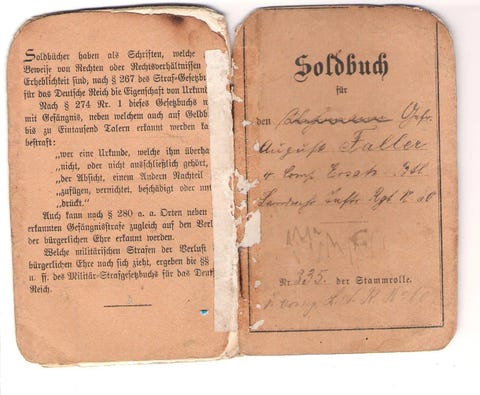 Soldbücher haben als Schriften, welche
Beweise von Rechten oder Rechtsverhältnissen
Erheblichkeit sind, nach § 267 des Straf-Gesetzbu
für das Deutsche Reich die Eigenschaft von Urkund
Nach § 274 Nr. 1 dieses Gesetzbuchs
mit Gefängnis, neben welchem auch auf Geldb
bis zu Eintausend Talern erkannt werden ka
bestraft:
„wer eine Urkunde, welche ihm überha
„nicht, oder nicht ausschließlich gehört,
„der Absicht, einem Andern Nachteil
„zufügen, vernichtet, beschädigt oder unt
„drückt."
Auch kann nach § 280 a. a. Orten neben
erkannten Gefängnisstrafe zugleich auf den Verl
der bürgerlichen Ehre erkannt werden.
Welche militärischen Strafen der Verlust
bürgerlichen Ehre nach sich zieht, ergeben die §§
u. ff. des Militär-Strafgesetzbuchs für das Deut
Reich.
Soldbuch
für
den Gefr.
August Faller
4 Comp. Ersatz Btl.
Landwehr Inftr. Rgt. N. 40
Nr. 335. der Stammrolle.